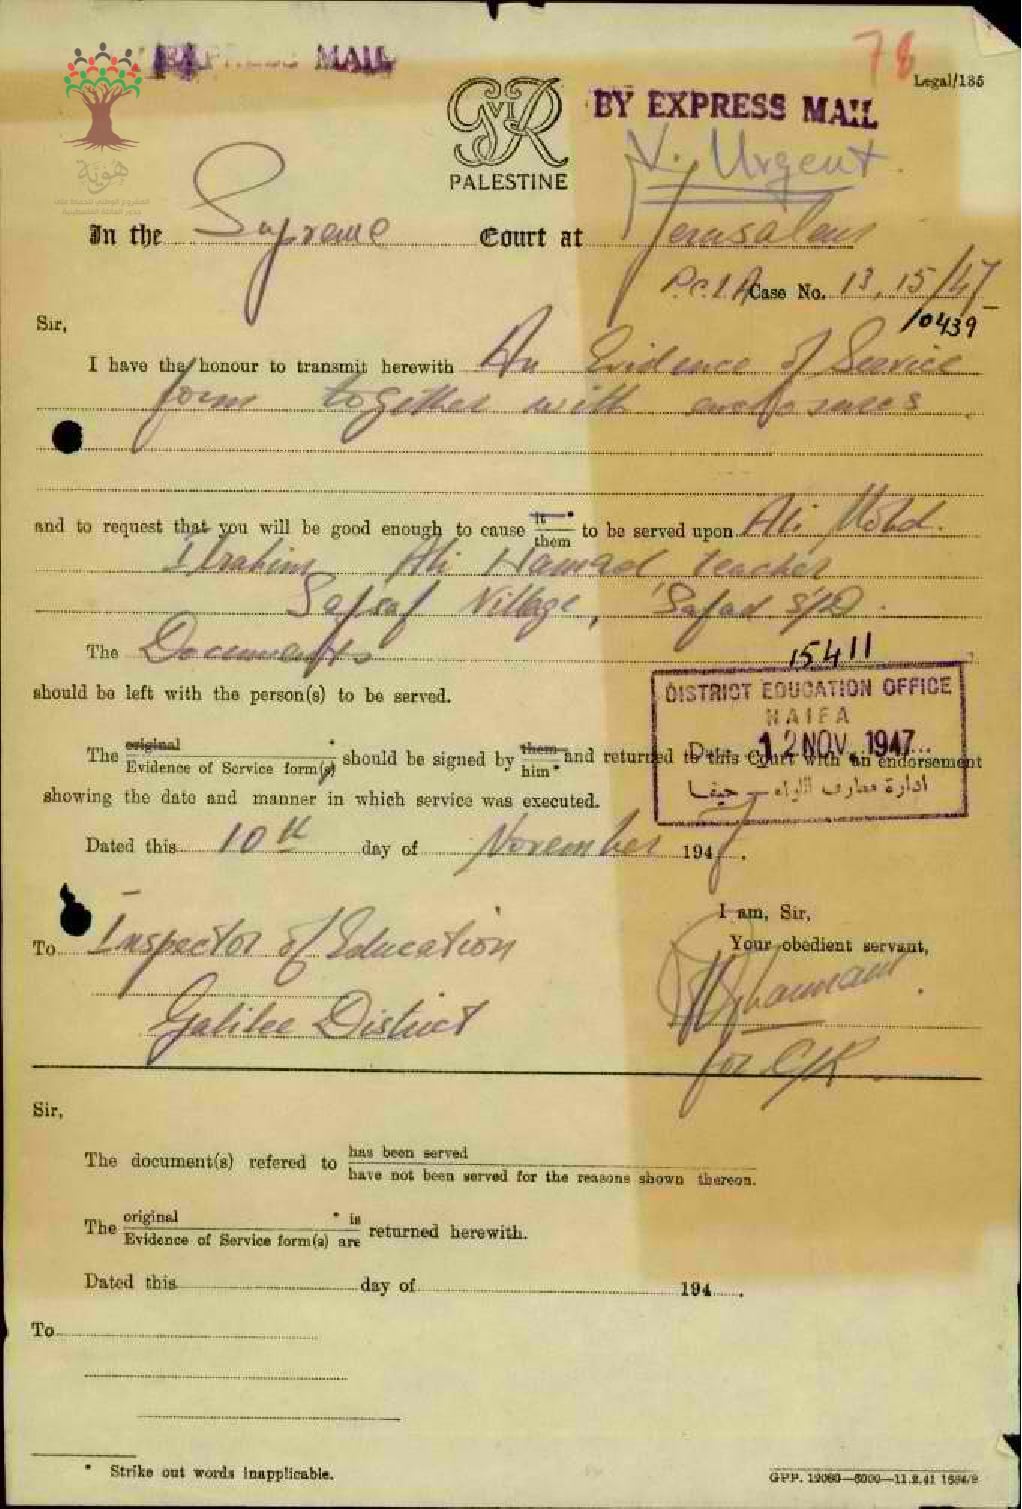 EXPRESS MAIL
78
Legal/185
GVIR
BY EXPRESS MAIL
V. Urgent
PALESTINE
هُويّة
المشروع الوطني للحفاظ على
جذور العائلة الفلسطينية
In the Supreme Court at Jerusalem
Case No. 13, 15/47
10439
Sir,
I have the honour to transmit herewith An Evidence of Service
form together with enclosures.
and to request that you will be good enough to cause it * / them to be served upon Ali Mohd.
Ibrahim Ali Hamad teacher
Safsaf Village, Safad S/D.
The Documents
15411
should be left with the person(s) to be served.
DISTRICT EDUCATION OFFICE
HAIFA
12 NOV. 1947
ادارة معارف اللواء - حيفا
The original * / Evidence of Service form(s) should be signed by them / him * and returned to this Court with an endorsement
showing the date and manner in which service was executed.
Dated this 10th day of November 1947.
I am, Sir,
Your obedient servant,
To Inspector of Education
Galilee District
for C/R.
Sir,
The document(s) refered to has been served / have not been served for the reasons shown thereon.
The original * is / Evidence of Service form(s) are returned herewith.
Dated this day of 194 .
To
* Strike out words inapplicable.
GPP. 12080—5000—11.2.41 1594/S